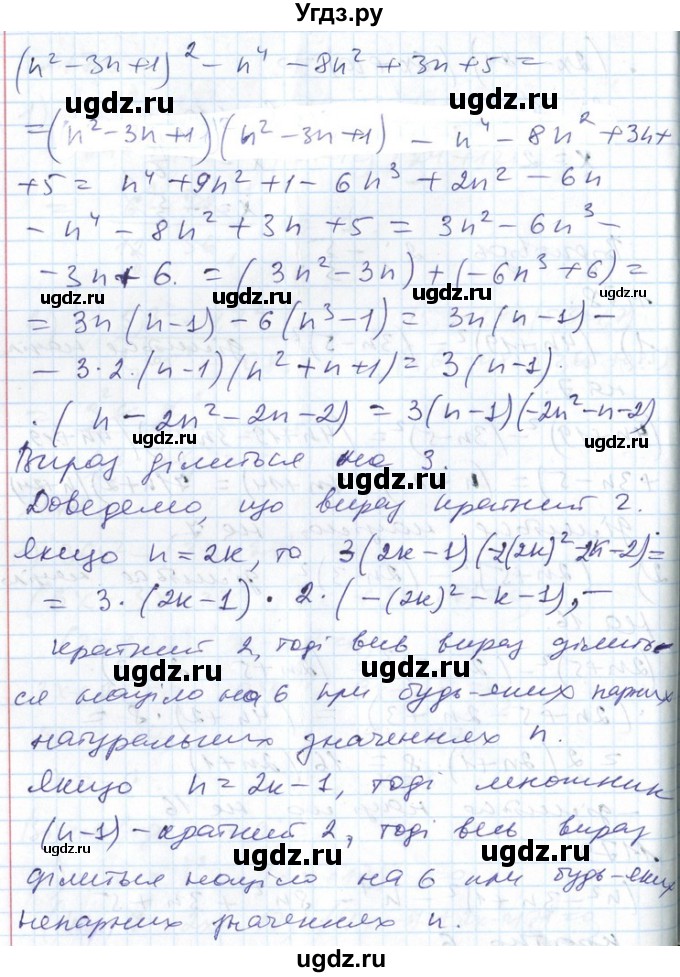 Угдз.ру
(n² - 3n + 1)² - n⁴ - 8n² + 3n + 5 =
ugdz.ru ugdz.ru
= (n² - 3n + 1)(n² - 3n + 1) - n⁴ - 8n² + 3n +
ugdz.ru
+ 5 = n⁴ + 9n² + 1 - 6n³ + 2n² - 6n
- n⁴ - 8n² + 3n + 5 = 3n² - 6n³ -
ugdz.ru
- 3n + 6. = (3n² - 3n) + (-6n³ + 6) =
ugdz.ru ugdz.ru
= 3n(n-1) - 6(n³-1) = 3n(n-1) -
ugdz.ru
- 3·2·(n-1)(n² + n + 1) = 3(n-1)·
·(n - 2n² - 2n - 2) = 3(n-1)(-2n² - n - 2)
ugdz.ru ugdz.ru
Вираз ділиться на 3.
ugdz.ru
Доведемо, що вираз кратний 2.
Якщо n = 2k, то 3(2k-1)(-2(2k)² - 2k - 2) =
ugdz.ru
= 3·(2k-1)·2·(-(2k)² - k - 1), -
ugdz.ru
кратний 2, тоді весь вираз ділить-
ugdz.ru ugdz.ru
ся націло на 6 при будь-яких парних
ugdz.ru
натуральних значеннях n.
Якщо n = 2k - 1, тоді множник
ugdz.ru
(n-1) - кратний 2, тоді весь вираз
ugdz.ru ugdz.ru
ділиться націло на 6 при будь-яких
ugdz.ru
непарних значеннях n.
ugdz.ru